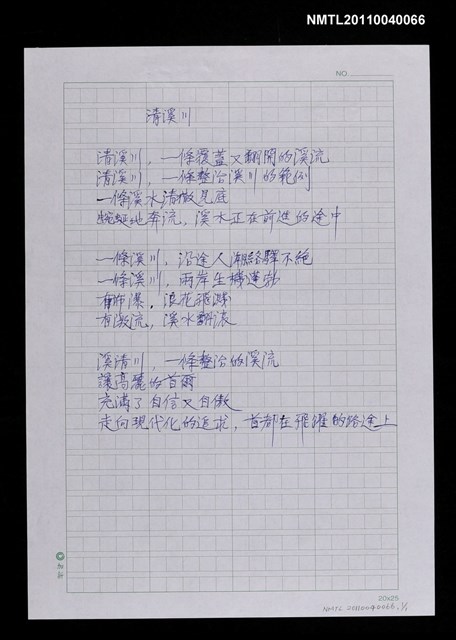 NMTL20110040066
NO.
清溪川
清溪川，一條覆蓋又翻開的溪流
清溪川，一條整治溪川的範例
一條溪水清撤見底
蜿蜒地奔流，溪水正在前進的途中
一條溪川，沿途人潮絡驛不絕
一條溪川，兩岸生機蓬勃
有瀑，浪花飛濺
有激流，溪水翻滾
溪清川，一條整治的溪流
讓高麗的首爾
充滿了自信又自傲
走向現代化的追求，首都在飛躍的路途上
20x25
NMTL 20110040066, 1/1